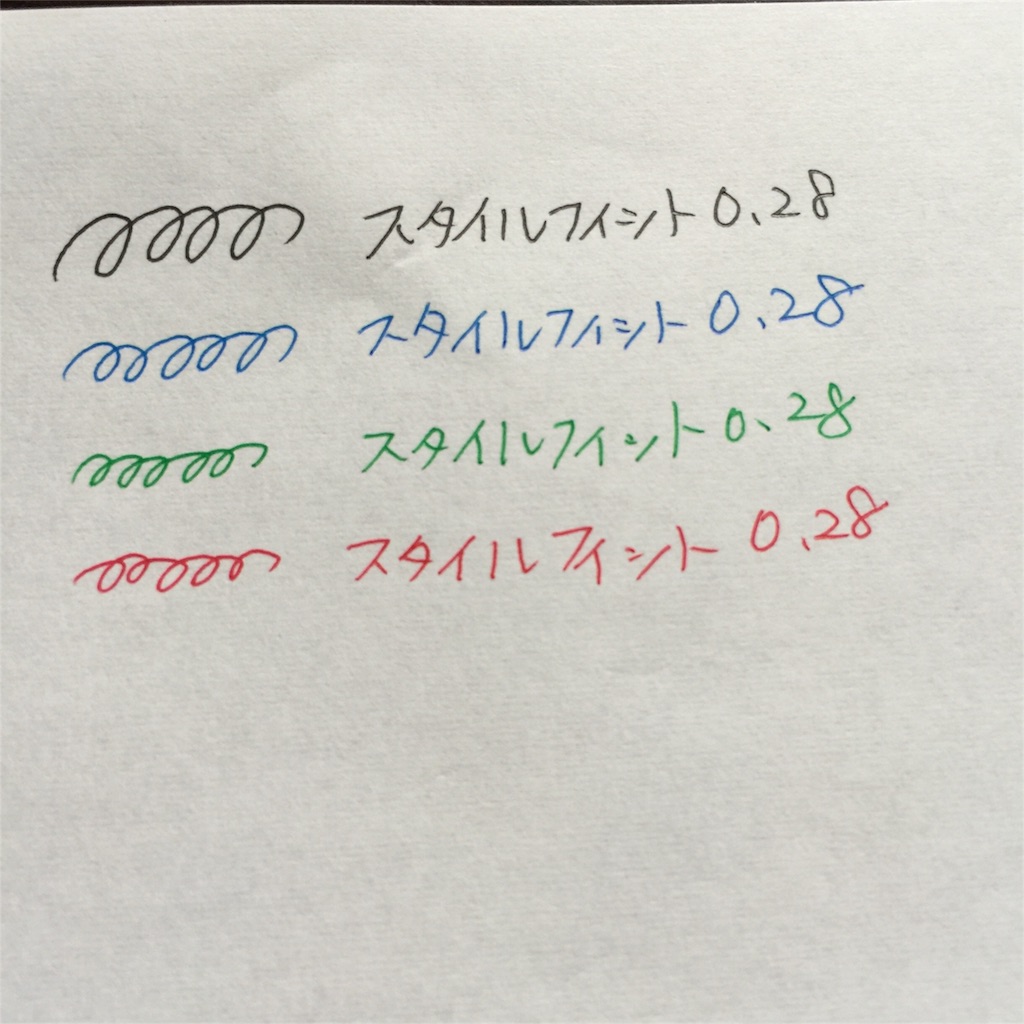 スタイルフィット 0.28
スタイルフィット 0.28
スタイルフィット 0.28
スタイルフィット 0.28